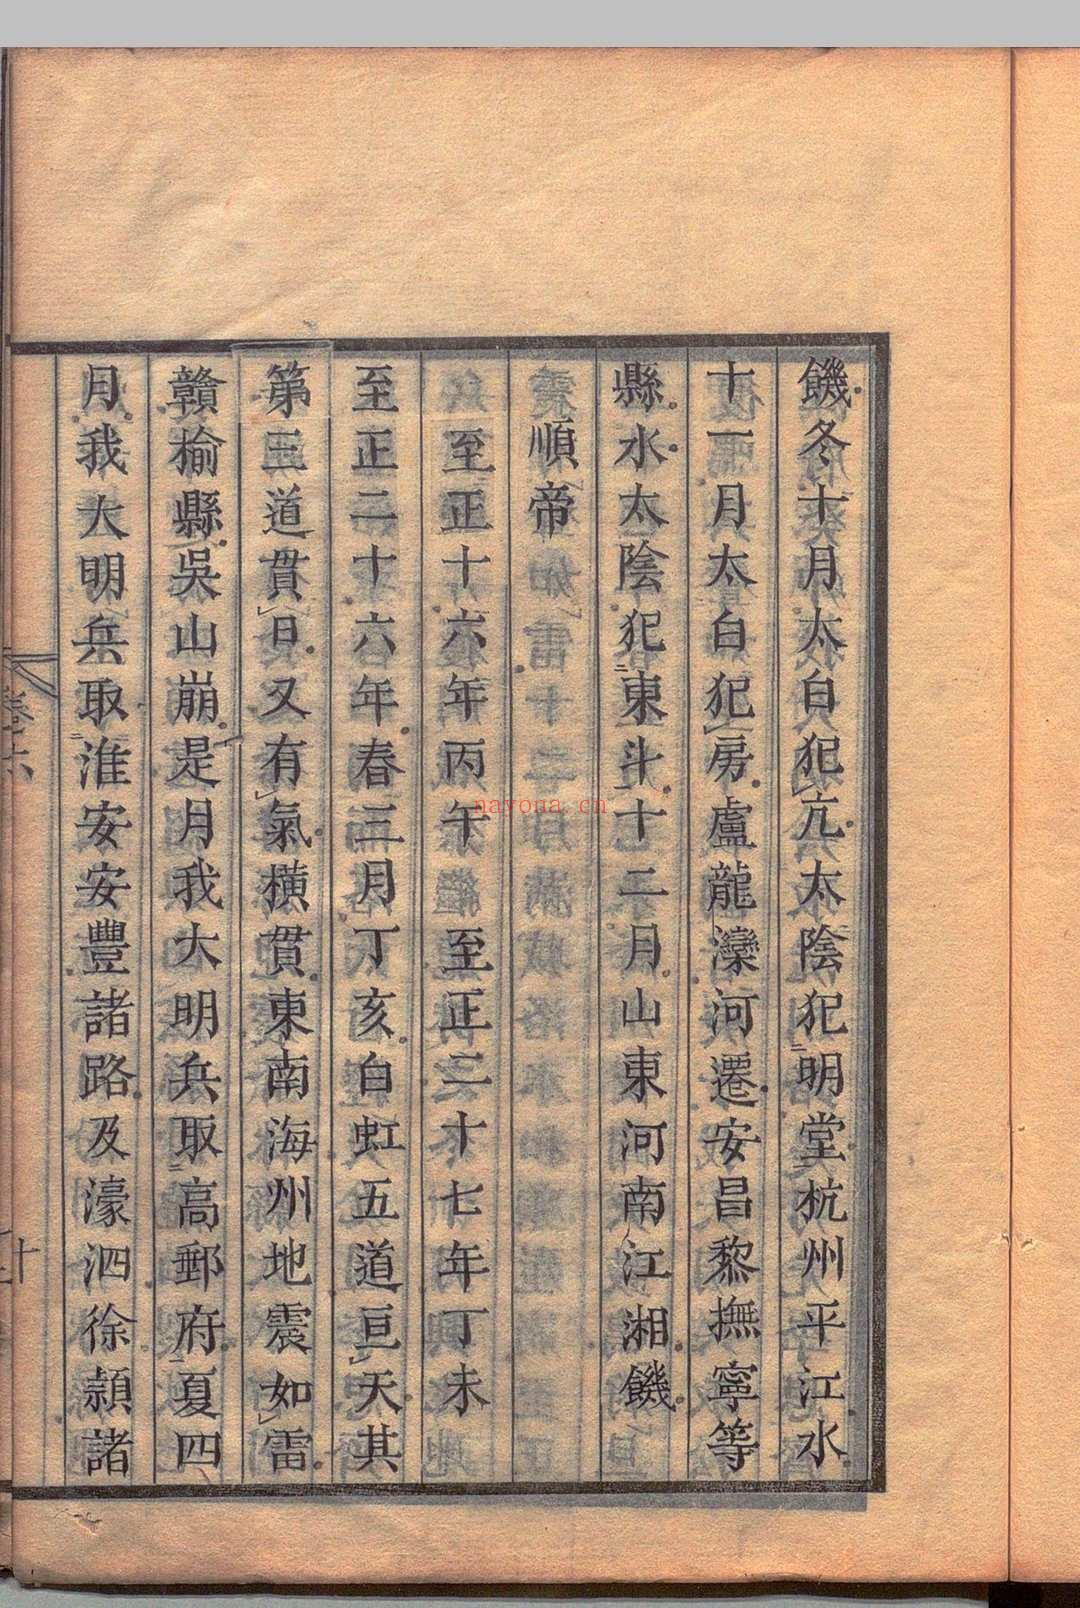 饑冬十月太白犯亢太陰犯明堂杭州平江水
十一月太白犯房盧龍灤河遷安昌黎撫寧等
縣水太陰犯東斗十二月山東河南江湘饑
順帝
至正十六年丙午至正二十七年丁未
至正二十六年春三月丁亥白虹五道亘天其
第三道貫日又有氣橫貫東南海州地震如雷
贛榆縣吳山崩是月我大明兵取高郵府夏四
月我大明兵取淮安安豐諸路及濠泗徐潁諸
卷六
nayona.cn